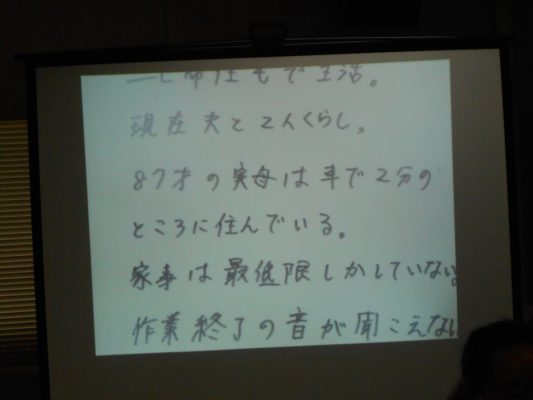 で生活。
現在夫と2人くらし。
87才の実母は車で2分の
ところに住んでいる。
家事は最低限しかしていない。
作業終了の音が聞こえない